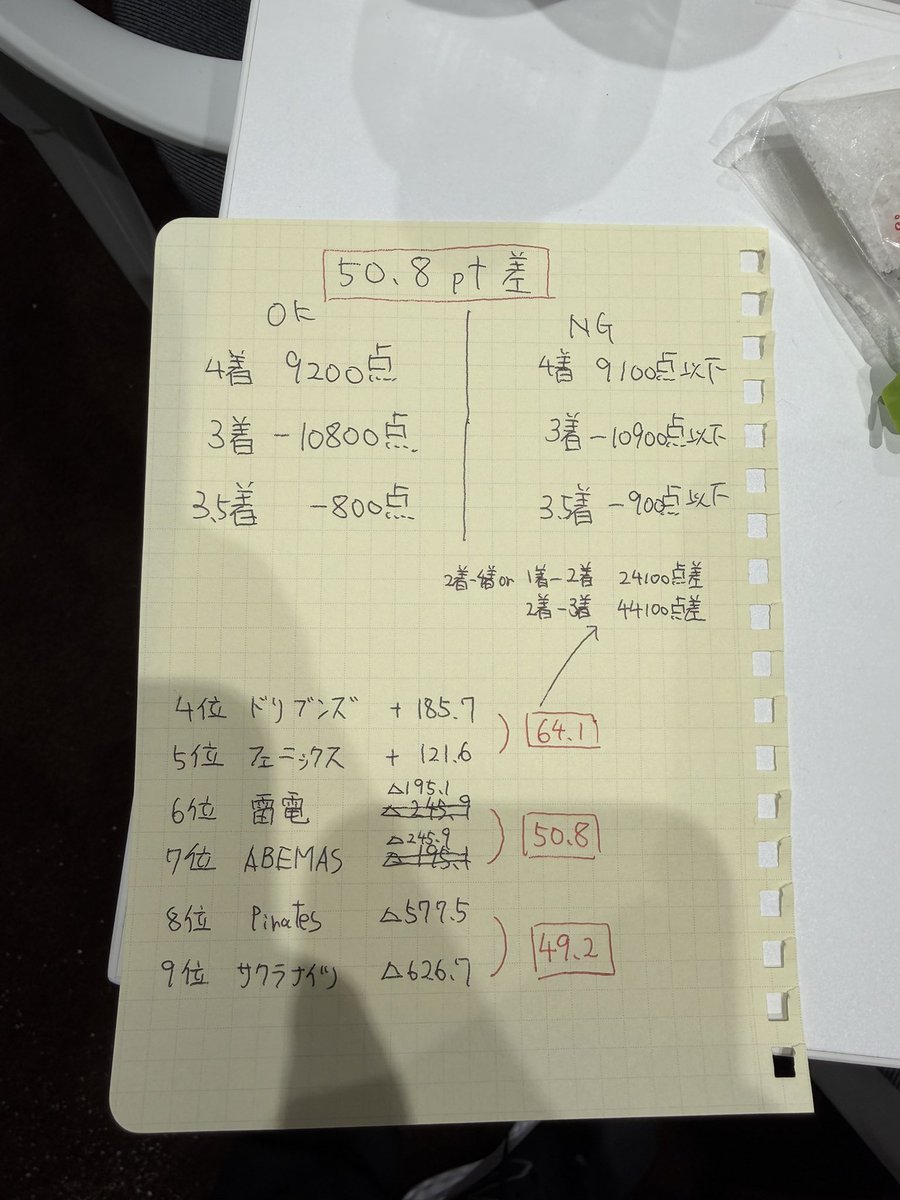 50.8 pt 差
OK
NG
4着 9200点
4着 9100点以下
3着 -10800点
3着 -10900点以下
3.5着 -800点
3.5着 -900点以下
2着-4着 or 1着-2着 24100点差
2着-3着 44100点差
4位 ドリブンズ +185.7
64.1
5位 フェニックス +121.6
△195.1
6位 雷電 △245.9
50.8
△245.9
7位 ABEMAS △195.1
8位 Pirates △577.5
49.2
9位 サクラナイツ △626.7